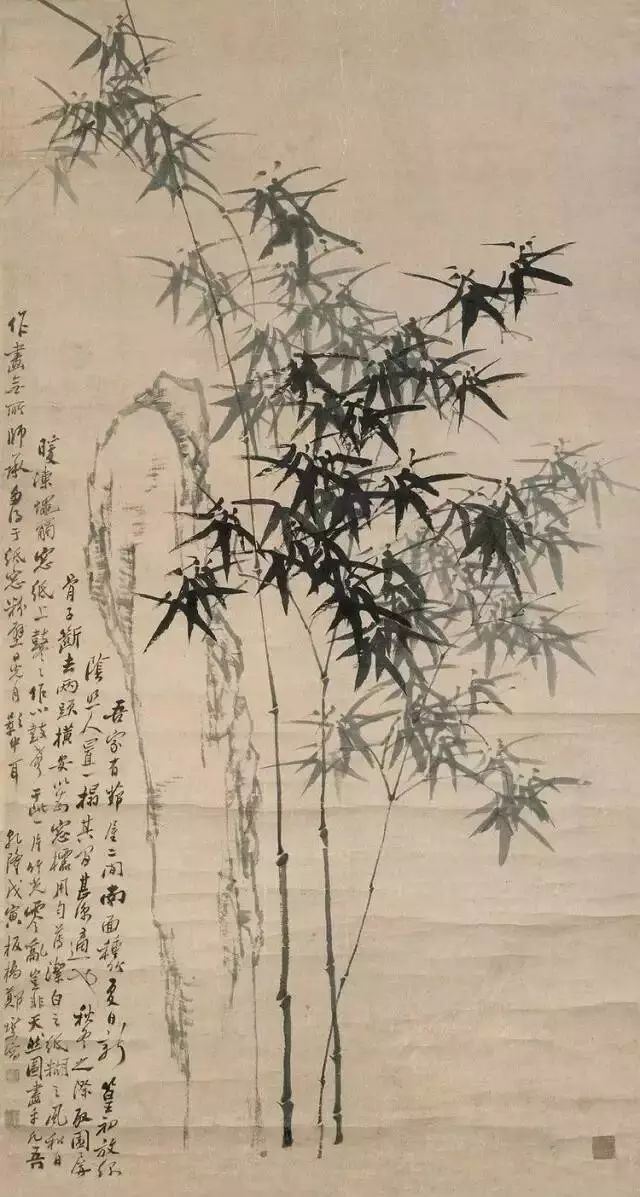 吾家有茅屋二間南面種竹夏日新篁初放綠
陰照人置一榻其間甚涼適也秋冬之際取圍屏
骨子斷去兩頭橫安以為窓櫺用勻薄潔白之紙糊之風和日
暖凍蠅觸窓紙上鼕〻作小鼓聲于此一片竹光零亂豈非天然圖畫乎凡吾
作畫無所師承多得于紙窓粉壁日光月影中耳 乾隆戊寅板橋鄭燮